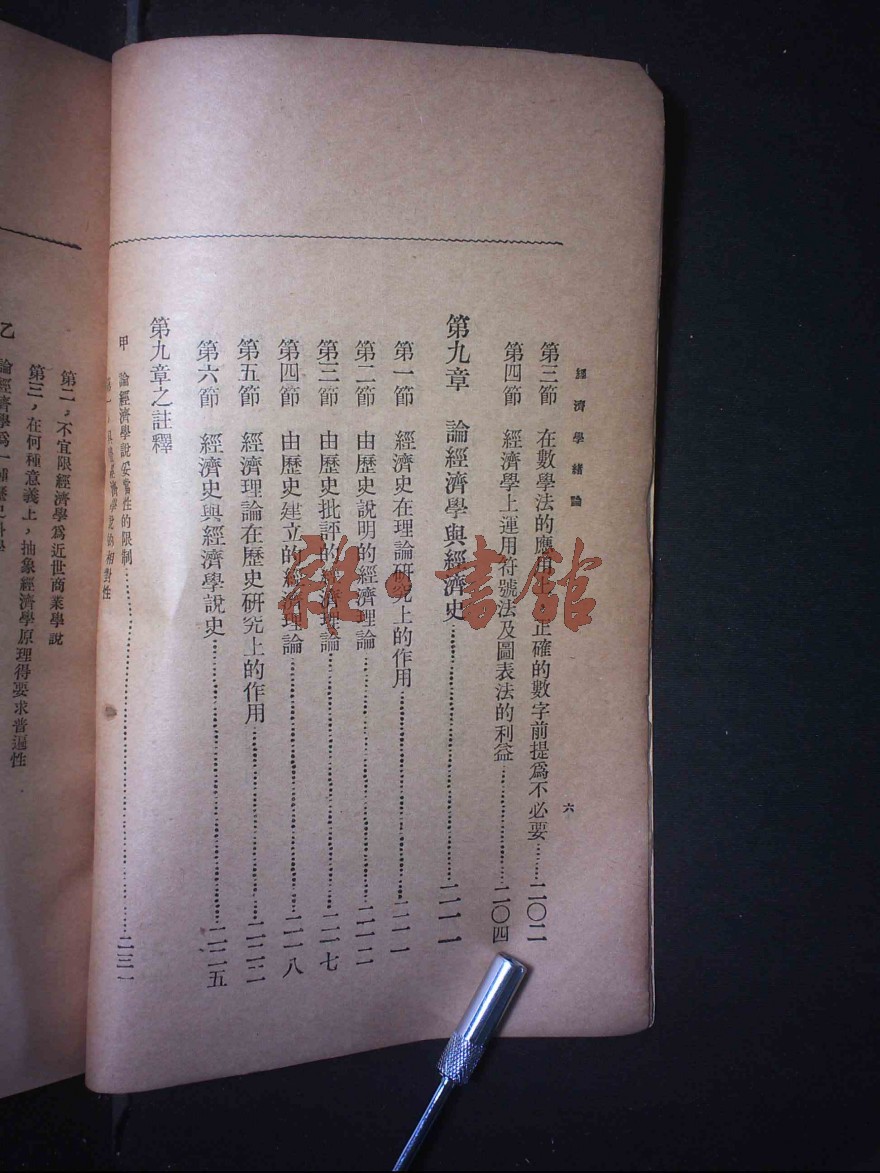 經濟學緒論
六
第三節　在數學法的應用上，正確的數字前提爲不必要………二〇二
第四節　經濟學上運用符號法及圖表法的利益………二〇四
第九章　論經濟學與經濟史………二一一
第一節　經濟史在理論研究上的作用………二一一
第二節　由歷史說明的經濟理論………二一二
第三節　由歷史批評的經濟理論………二一七
第四節　由歷史建立的經濟理論………二一八
第五節　經濟理論在歷史研究上的作用………二二二
第六節　經濟史與經濟學說史………二二五
第九章之註釋
甲　論經濟學說妥當性的限制………二三一
經濟學說的相對性
第二，不宜限經濟學爲近世商業學說
第三，在何種意義上，抽象經濟學原理得要求普遍性
乙　論經濟學爲一種歷史科學
雜·書館